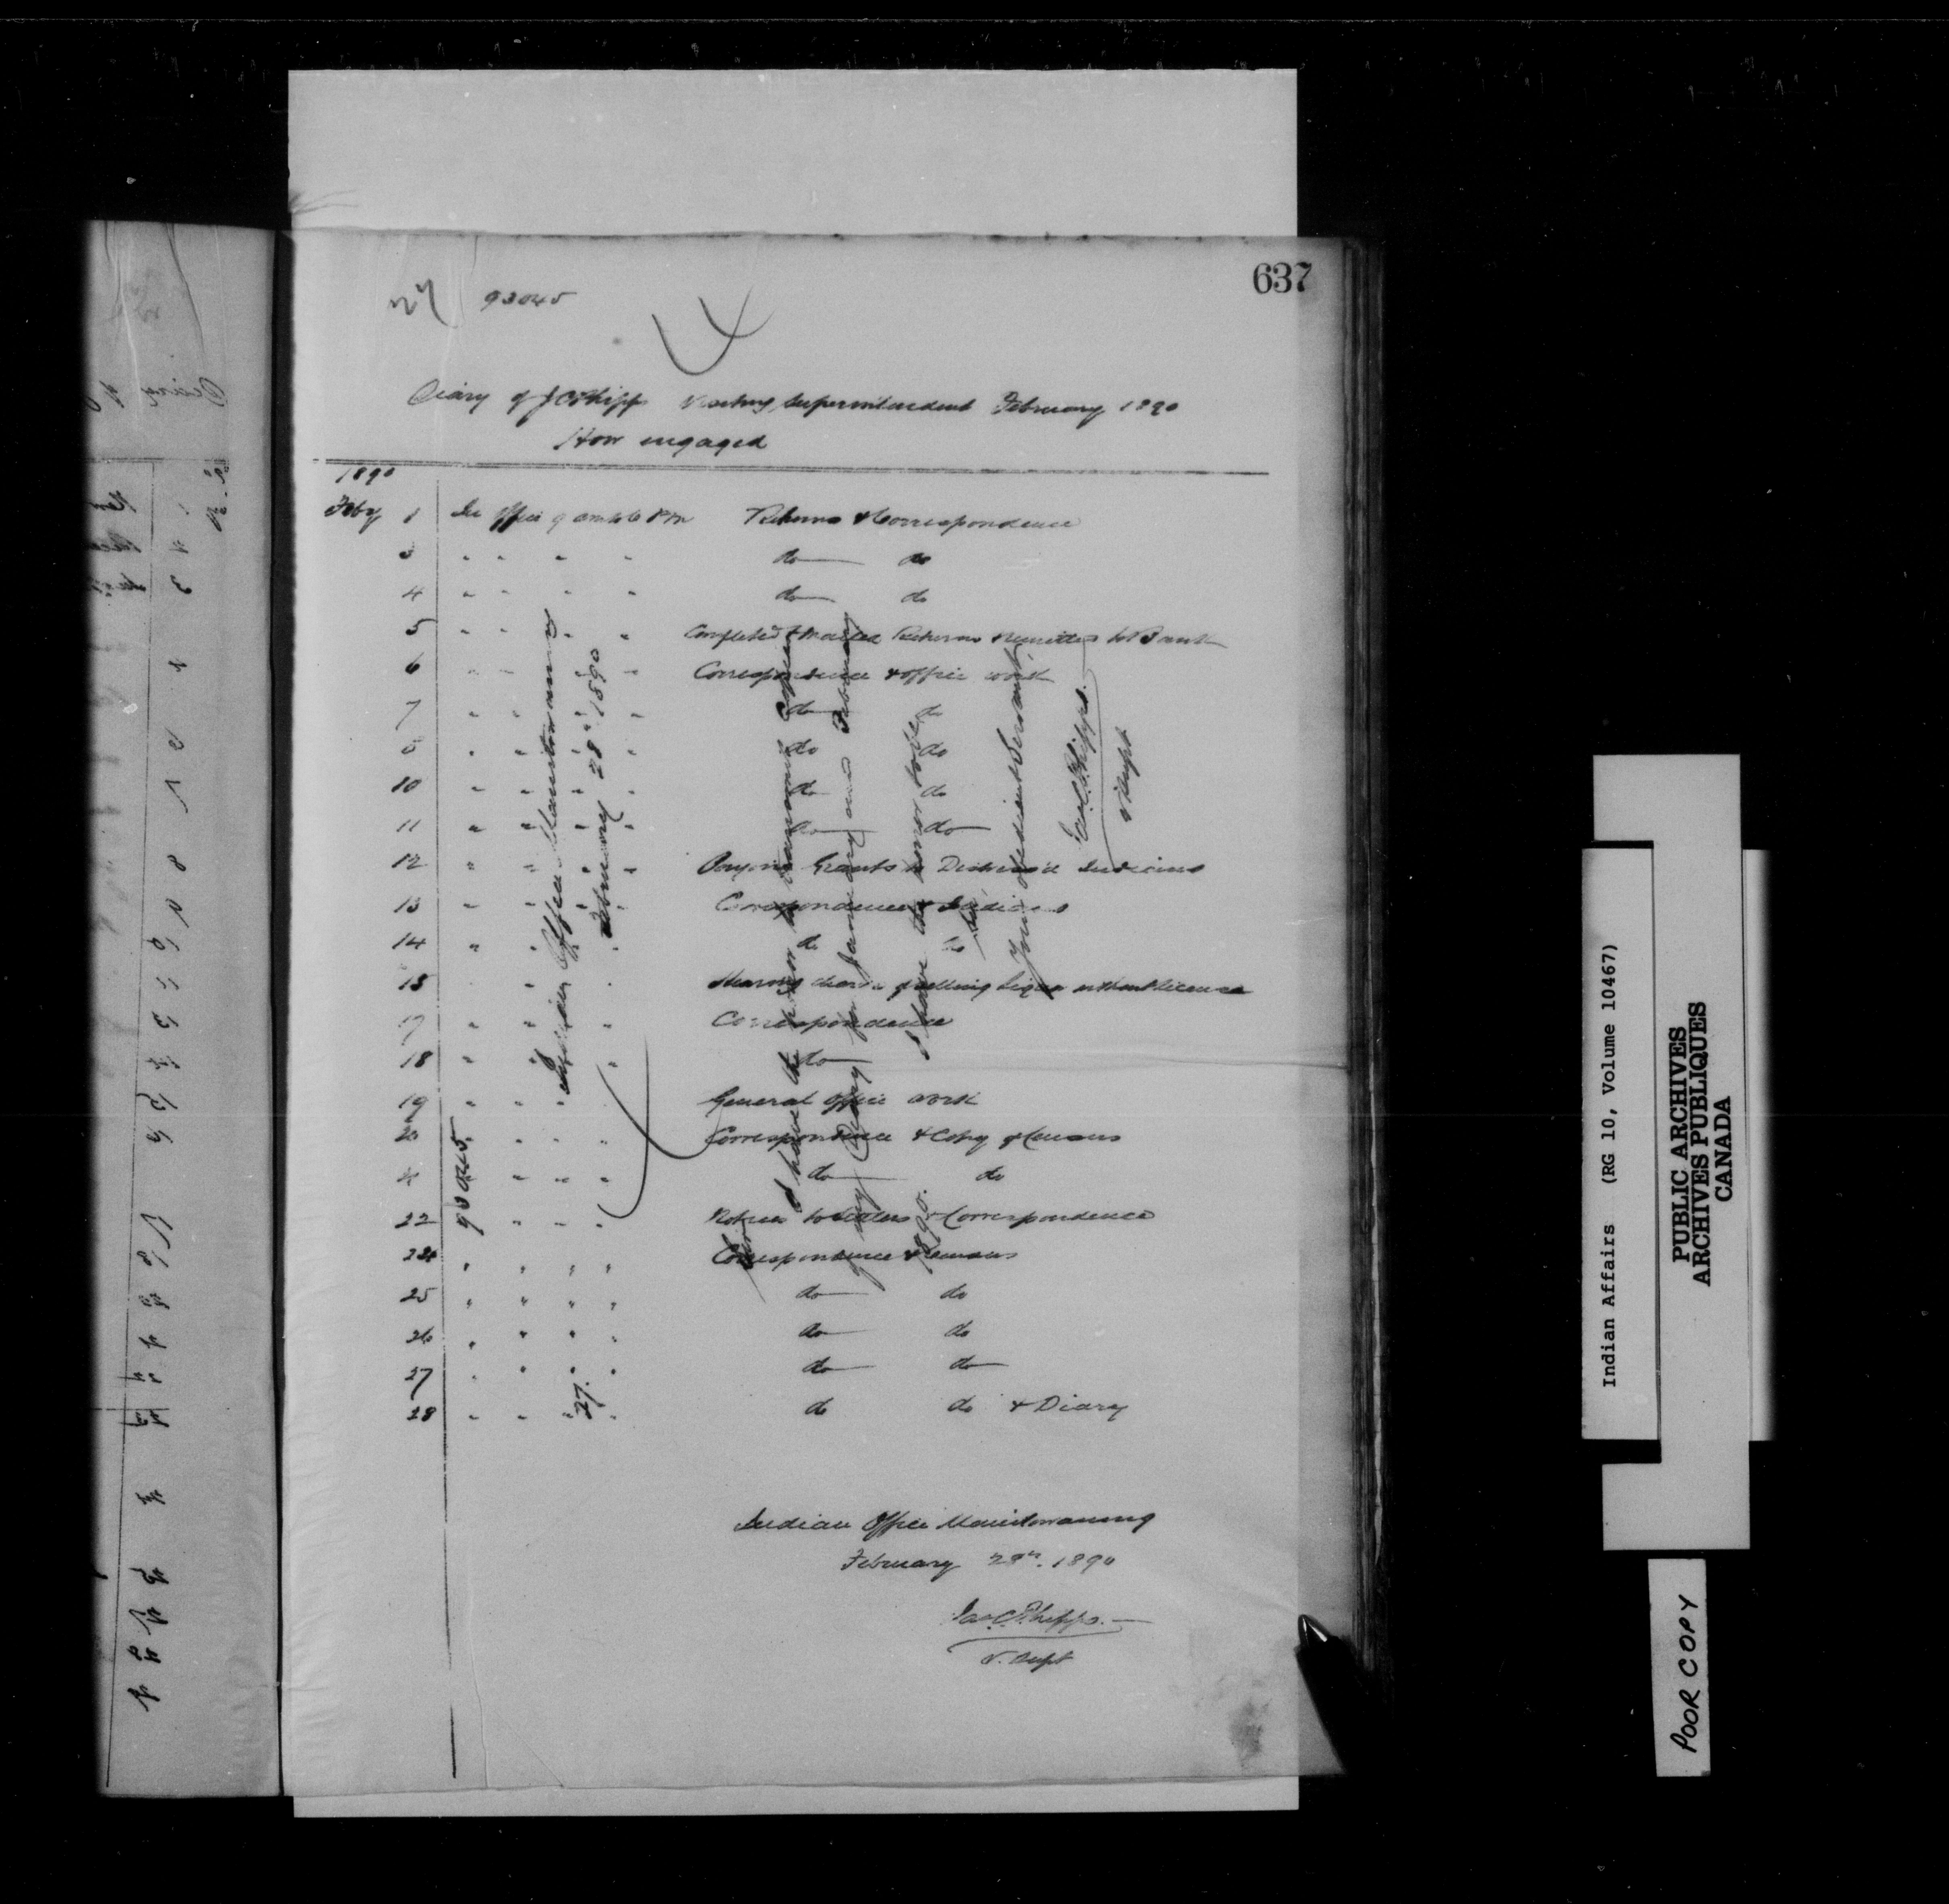 637
27 93045
Diary of J C Phipps Visiting Superintendent February 1890
How engaged
1890
Feby 1 In Office 9 am to 6 P.M Returns & Correspondence
3 " " " " do do
4 " " " " do do
5 " " " " Completed & mailed Returns & remitted to Bank
6 " " " " Correspondence & office work
7 " " " " do do
8 " " " " do do
10 " " " " do do
11 " " " " do do
12 " " " " Paying Grants to Distress'd Indians
13 " " " " Correspondence & Indians
14 " " " do do
15 " " " Hearing charge of selling Liquor without license
17 " " " Correspondence
18 " " " do
19 " " " General Office work
20 " " " Correspondence & Copy of Census
" " " do do
22 " " " Notices to Settlers & Correspondence
24 " " " " Correspondence & Census
25 " " " " do do
26 " " " " do do
27 " " " " do do
28 " " " " do do & Diary
Indian Office Manitowaning
February 28th. 1890
Jas. C. Phipps.
V. Supt
93045
27.
Indian Office Manitowaning
February 28th 1890
Sir
I have the honor to transmit copies
of my Diary for January and February
1890.
I have the honor to be
Sir
Your obedient Servant
Jas. C. Phipps.
V Supt
Indian Affairs (RG 10, Volume 10467)
PUBLIC ARCHIVES
ARCHIVES PUBLIQUES
CANADA
POOR COPY